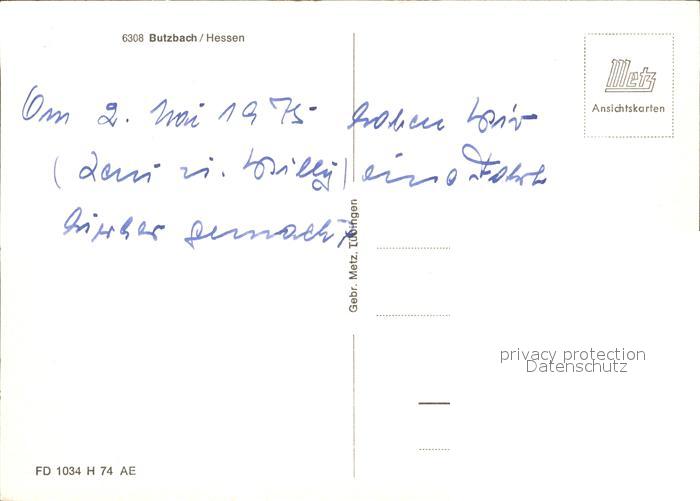 6308 Butzbach / Hessen
Metz
Ansichtskarten
Am 2. Mai 1975 haben wir
( Leni u. Willy) eine Fahrt
hierher gemacht
Gebr. Metz, Tübingen
privacy protection
Datenschutz
FD 1034 H 74 AE